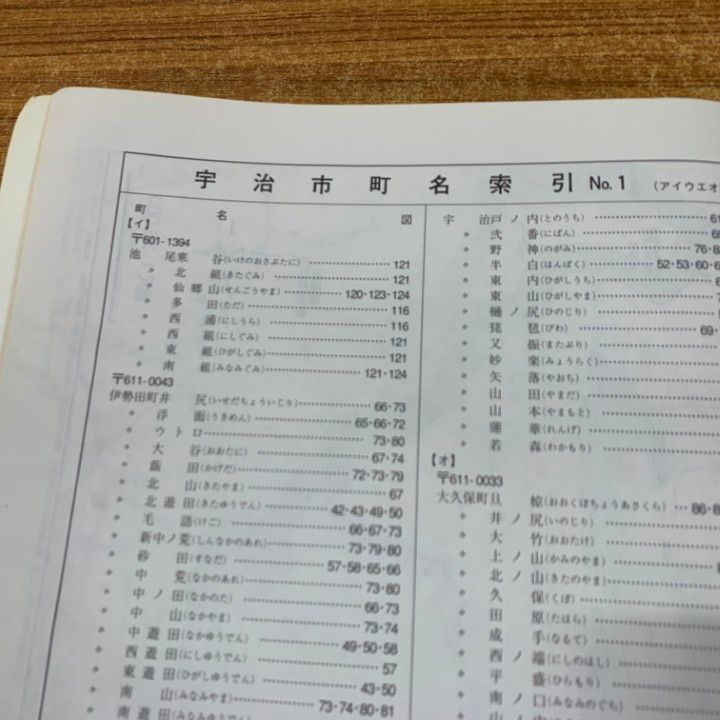 宇治市町名索引 No.1 (アイウエオ
町 名 図
【イ】
〒601-1394
池尾寒谷(いけのおさぶたに) 121
〃 北組(きたぐみ) 121
〃 仙郷山(せんごうやま) 120・123・124
〃 多田(ただ) 116
〃 西浦(にしうち) 116
〃 西組(にしぐみ) 121
〃 東組(ひがしぐみ) 121
〃 南組(みなみぐみ) 121・124
〒611-0043
伊勢田町井尻(いせだちょういじり) 66・73
〃 浮面(うきめん) 65・66・72
〃 ウトロ 73・80
〃 大谷(おおたに) 67・74
〃 蔭田(かげだ) 72・73・79
〃 北山(きたやま) 67
〃 北遊田(きたゆうでん) 42・43・49・50
〃 毛語(けご) 66・67・73
〃 新中ノ荒(しんなかのあれ) 73・79・80
〃 砂田(すなだ) 57・58・65・66
〃 中荒(なかのあれ) 73・80
〃 中ノ田(なかのた) 66・73
〃 中山(なかやま) 73・74
〃 中遊田(なかゆうでん) 49・50・58
〃 西遊田(にしゆうでん) 57
〃 東遊田(ひがしゆうでん) 43・50
〃 南山(みなみやま) 73・74・80・81
〃 南遊田(みなみゆうでん)
宇治戸ノ内(とのうち)
〃 弐番(にばん)
〃 野神(のがみ) 76・8
〃 半白(はんぱく) 52・53・60・6
〃 東内(ひがしうち)
〃 東山(ひがしやま)
〃 樋ノ尻(ひのじり)
〃 琵琶(びわ) 69・
〃 又振(またぶり)
〃 妙楽(みょうらく)
〃 矢落(やおち)
〃 山田(やまだ)
〃 山本(やまもと)
〃 蓮華(れんげ)
〃 若森(わかもり)
【オ】
〒611-0033
大久保町旦椋(おおくぼちょうあさくら) 86・8
〃 井ノ尻(いのじり)
〃 大竹(おおたけ)
〃 上ノ山(かみのやま)
〃 北ノ山(きたのやま)
〃 久保(くぼ)
〃 田原(たはら)
〃 成手(なるて)
〃 西ノ端(にしのはし)
〃 平盛(ひらもり)
〃 南ノ口(みなみのぐち)